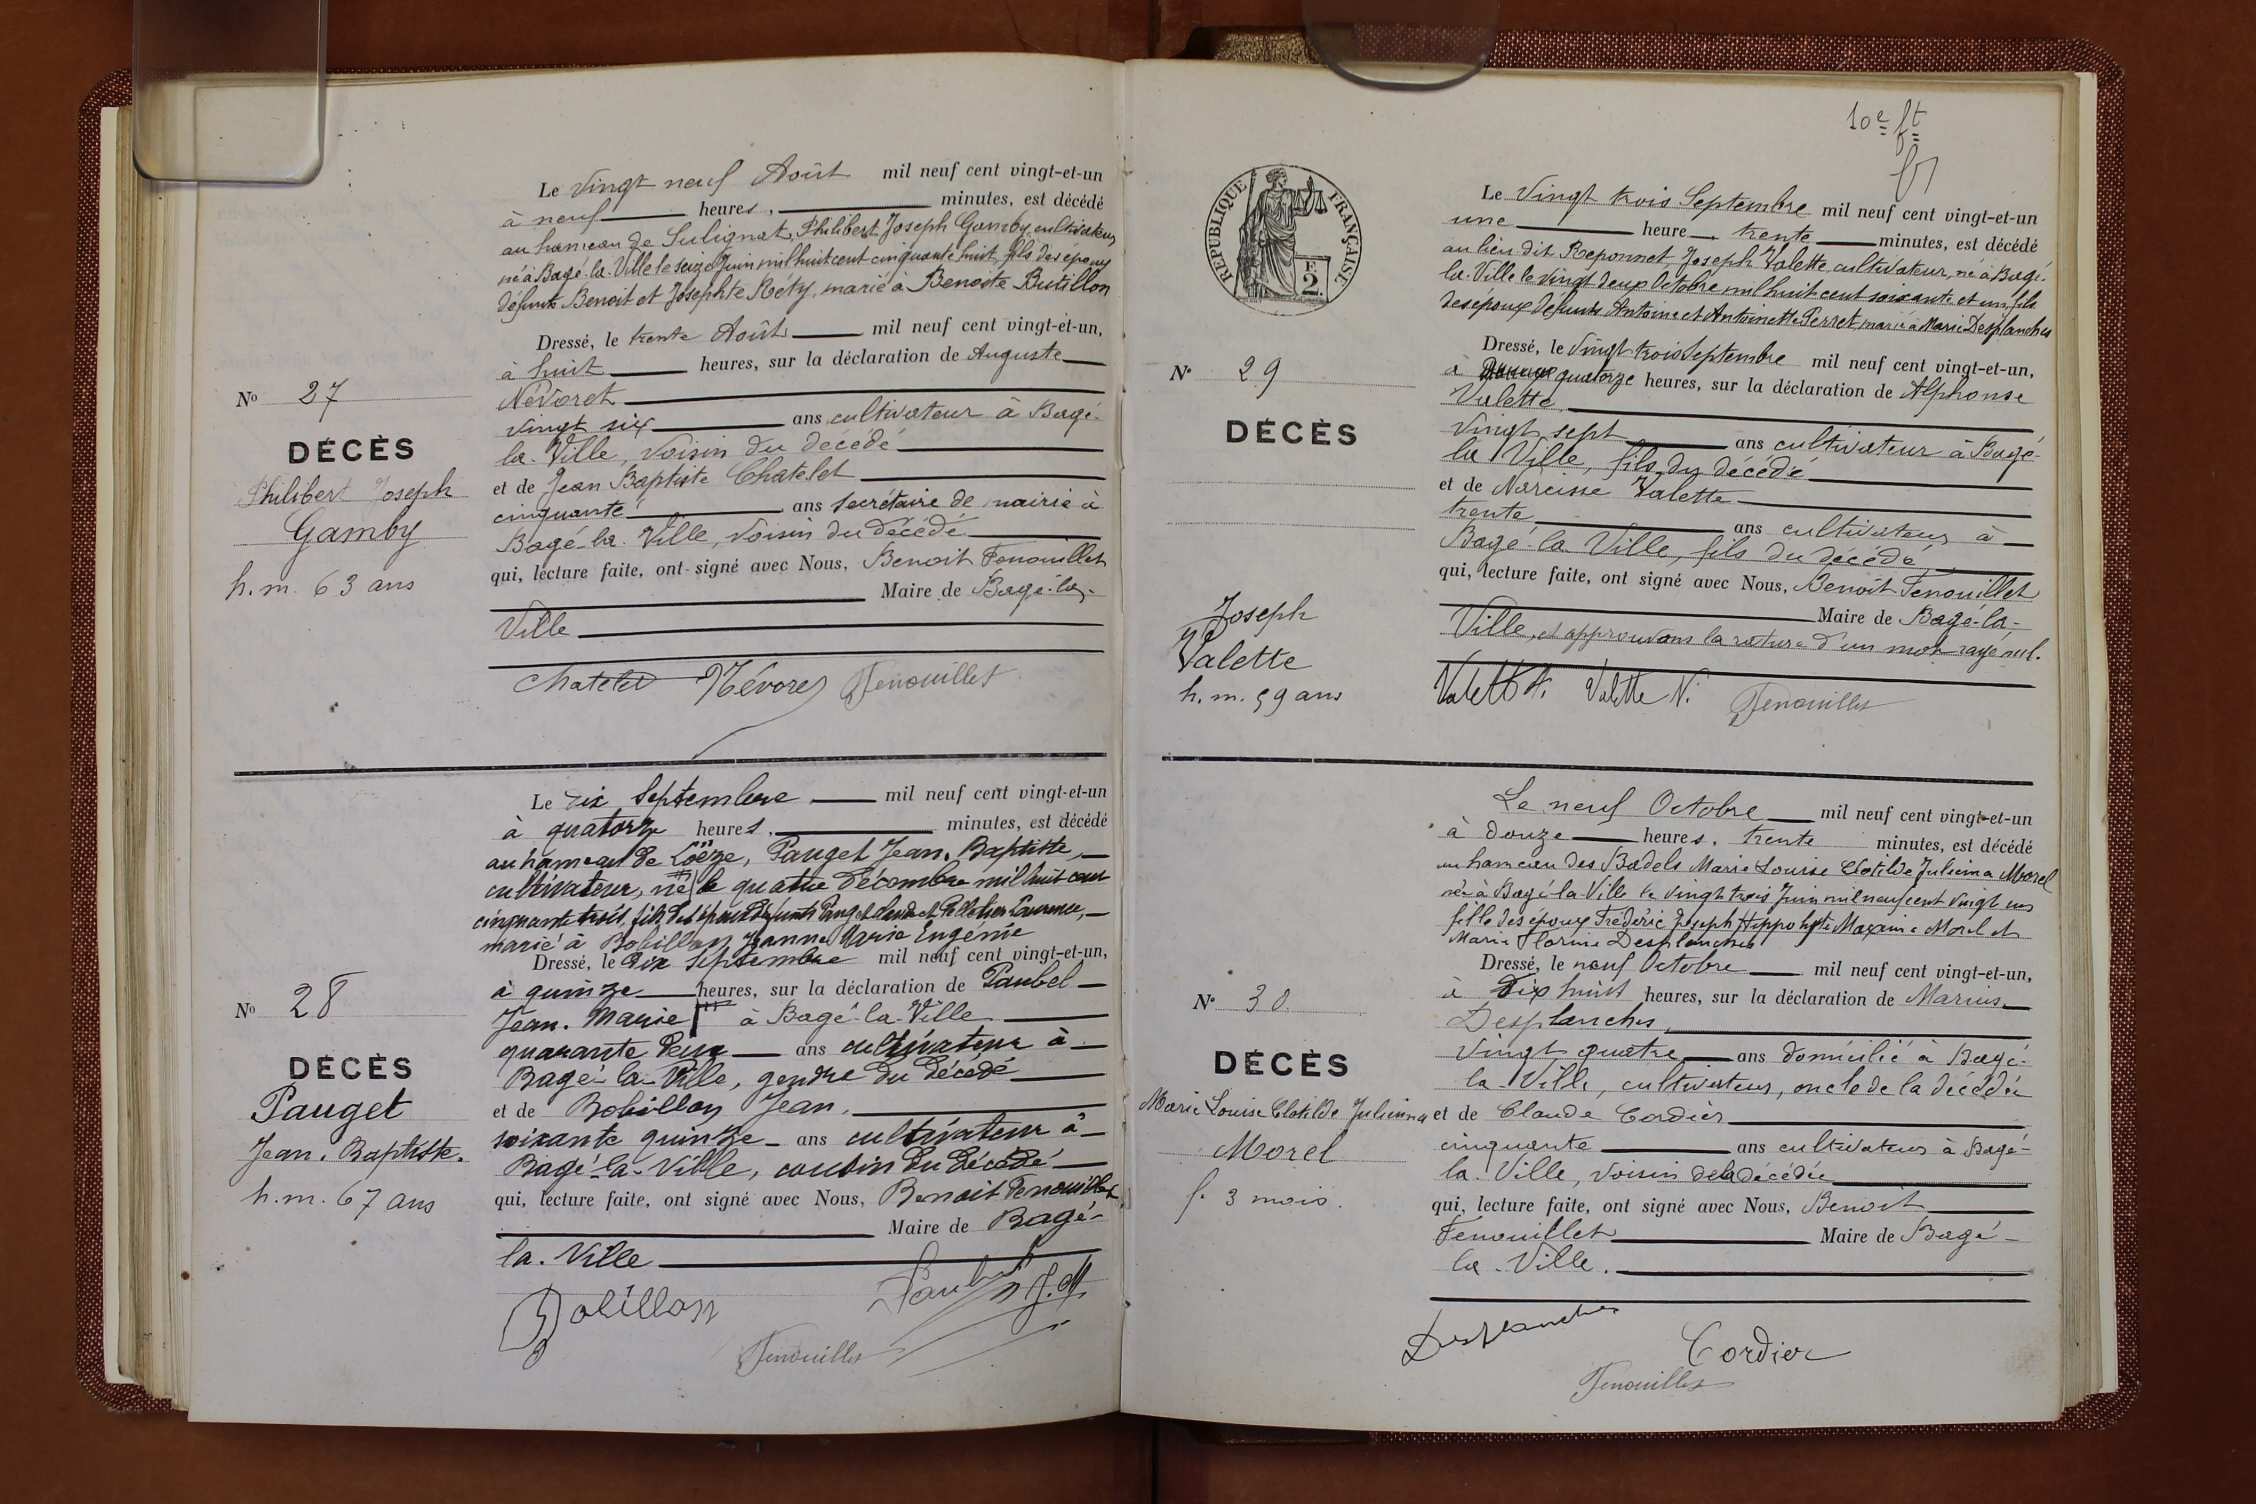 Le Vingt neuf Août mil neuf cent vingt-et-un
à neuf heures, minutes, est décédé
au hameau de Sulignat, Philibert Joseph Gamby, cultivateur
né à Bagé-la-Ville le seize Juin mil huit cent cinquante huit, fils des époux
défunts Benoit et Josephte Réty, marié à Benoite Butillon
Dressé, le trente Août mil neuf cent vingt-et-un,
à huit heures, sur la déclaration de Auguste
Névoret
vingt six ans cultivateur à Bagé-
la-Ville, voisin du décédé
et de Jean Baptiste Chatelet
cinquante ans secrétaire de mairie à
Bagé-la-Ville, voisin du décédé
qui, lecture faite, ont signé avec Nous, Benoit Fenouillet
Maire de Bagé-la-
Ville
Chatelet Névoret Fenouillet
No 27
DÉCÈS
Philibert Joseph
Gamby
h. m. 63 ans
Le dix Septembre mil neuf cent vingt-et-un
à quatorze heures, minutes, est décédé
au hameau de Loëze, Pauget Jean-Baptiste,
cultivateur, né le quatre décembre mil huit cent
cinquante trois, fils des époux défunts Pauget Claude et Pelletier Laurence,
marié à Bobillon Jeanne Marie Eugénie
Dressé, le dix septembre mil neuf cent vingt-et-un,
à quinze heures, sur la déclaration de Paubel
Jean-Marie à Bagé-la-Ville
quarante deux ans cultivateur à
Bagé-la-Ville, gendre du décédé
et de Bobillon Jean,
soixante quinze ans cultivateur à
Bagé-la-Ville, cousin du décédé
qui, lecture faite, ont signé avec Nous, Benoit Fenouillet
Maire de Bagé-
la-Ville
Bobillon Paubel J. M
Fenouillet
No 28
DÉCÈS
Pauget
Jean-Baptiste.
h. m. 67 ans
10e ft
RÉPUBLIQUE FRANÇAISE
E
2
Le Vingt trois Septembre mil neuf cent vingt-et-un
une heure trente minutes, est décédé
au lieu dit Reponnet, Joseph Valette, cultivateur, né à Bagé-
la-Ville le vingt deux Octobre mil huit cent soixante et un, fils
des époux défunts Antoine et Antoinette Perret, marié à Marie Desplanches
Dressé, le vingt trois Septembre mil neuf cent vingt-et-un,
à quatorze heures, sur la déclaration de Alphonse
Valette,
Vingt sept ans cultivateur à Bagé-
la Ville, fils du décédé
et de Narcisse Valette
trente ans cultivateur à
Bagé-la Ville, fils du décédé,
qui, lecture faite, ont signé avec Nous, Benoit Fenouillet
Maire de Bagé-la-
Ville, et approuvons la rature d'un mot rayé nul.
Valette A. Valette N. Fenouillet
No 29
DÉCÈS
Joseph
Valette
h. m. 59 ans
Le neuf Octobre mil neuf cent vingt-et-un
à douze heures, trente minutes, est décédé
au hameau des Badels Marie Louise Clotilde Julienna Morel
née à Bagé-la Ville le vingt trois Juin mil neuf cent vingt un
fille des époux Frédéric Joseph Hippolyte Maxime Morel et
Marie Florine Desplanches
Dressé, le neuf Octobre mil neuf cent vingt-et-un,
à Dix huit heures, sur la déclaration de Marius
Desplanches,
Vingt quatre ans domicilié à Bagé-
la-Ville, cultivateur, oncle de la décédée
et de Claude Cordier
cinquante ans cultivateur à Bagé-
la-Ville, voisin de la décédée
qui, lecture faite, ont signé avec Nous, Benoit
Fenouillet Maire de Bagé-
la-Ville.
Desplanches
Cordier
Fenouillet
No 30
DÉCÈS
Marie Louise Clotilde Julienna
Morel
f. 3 mois.